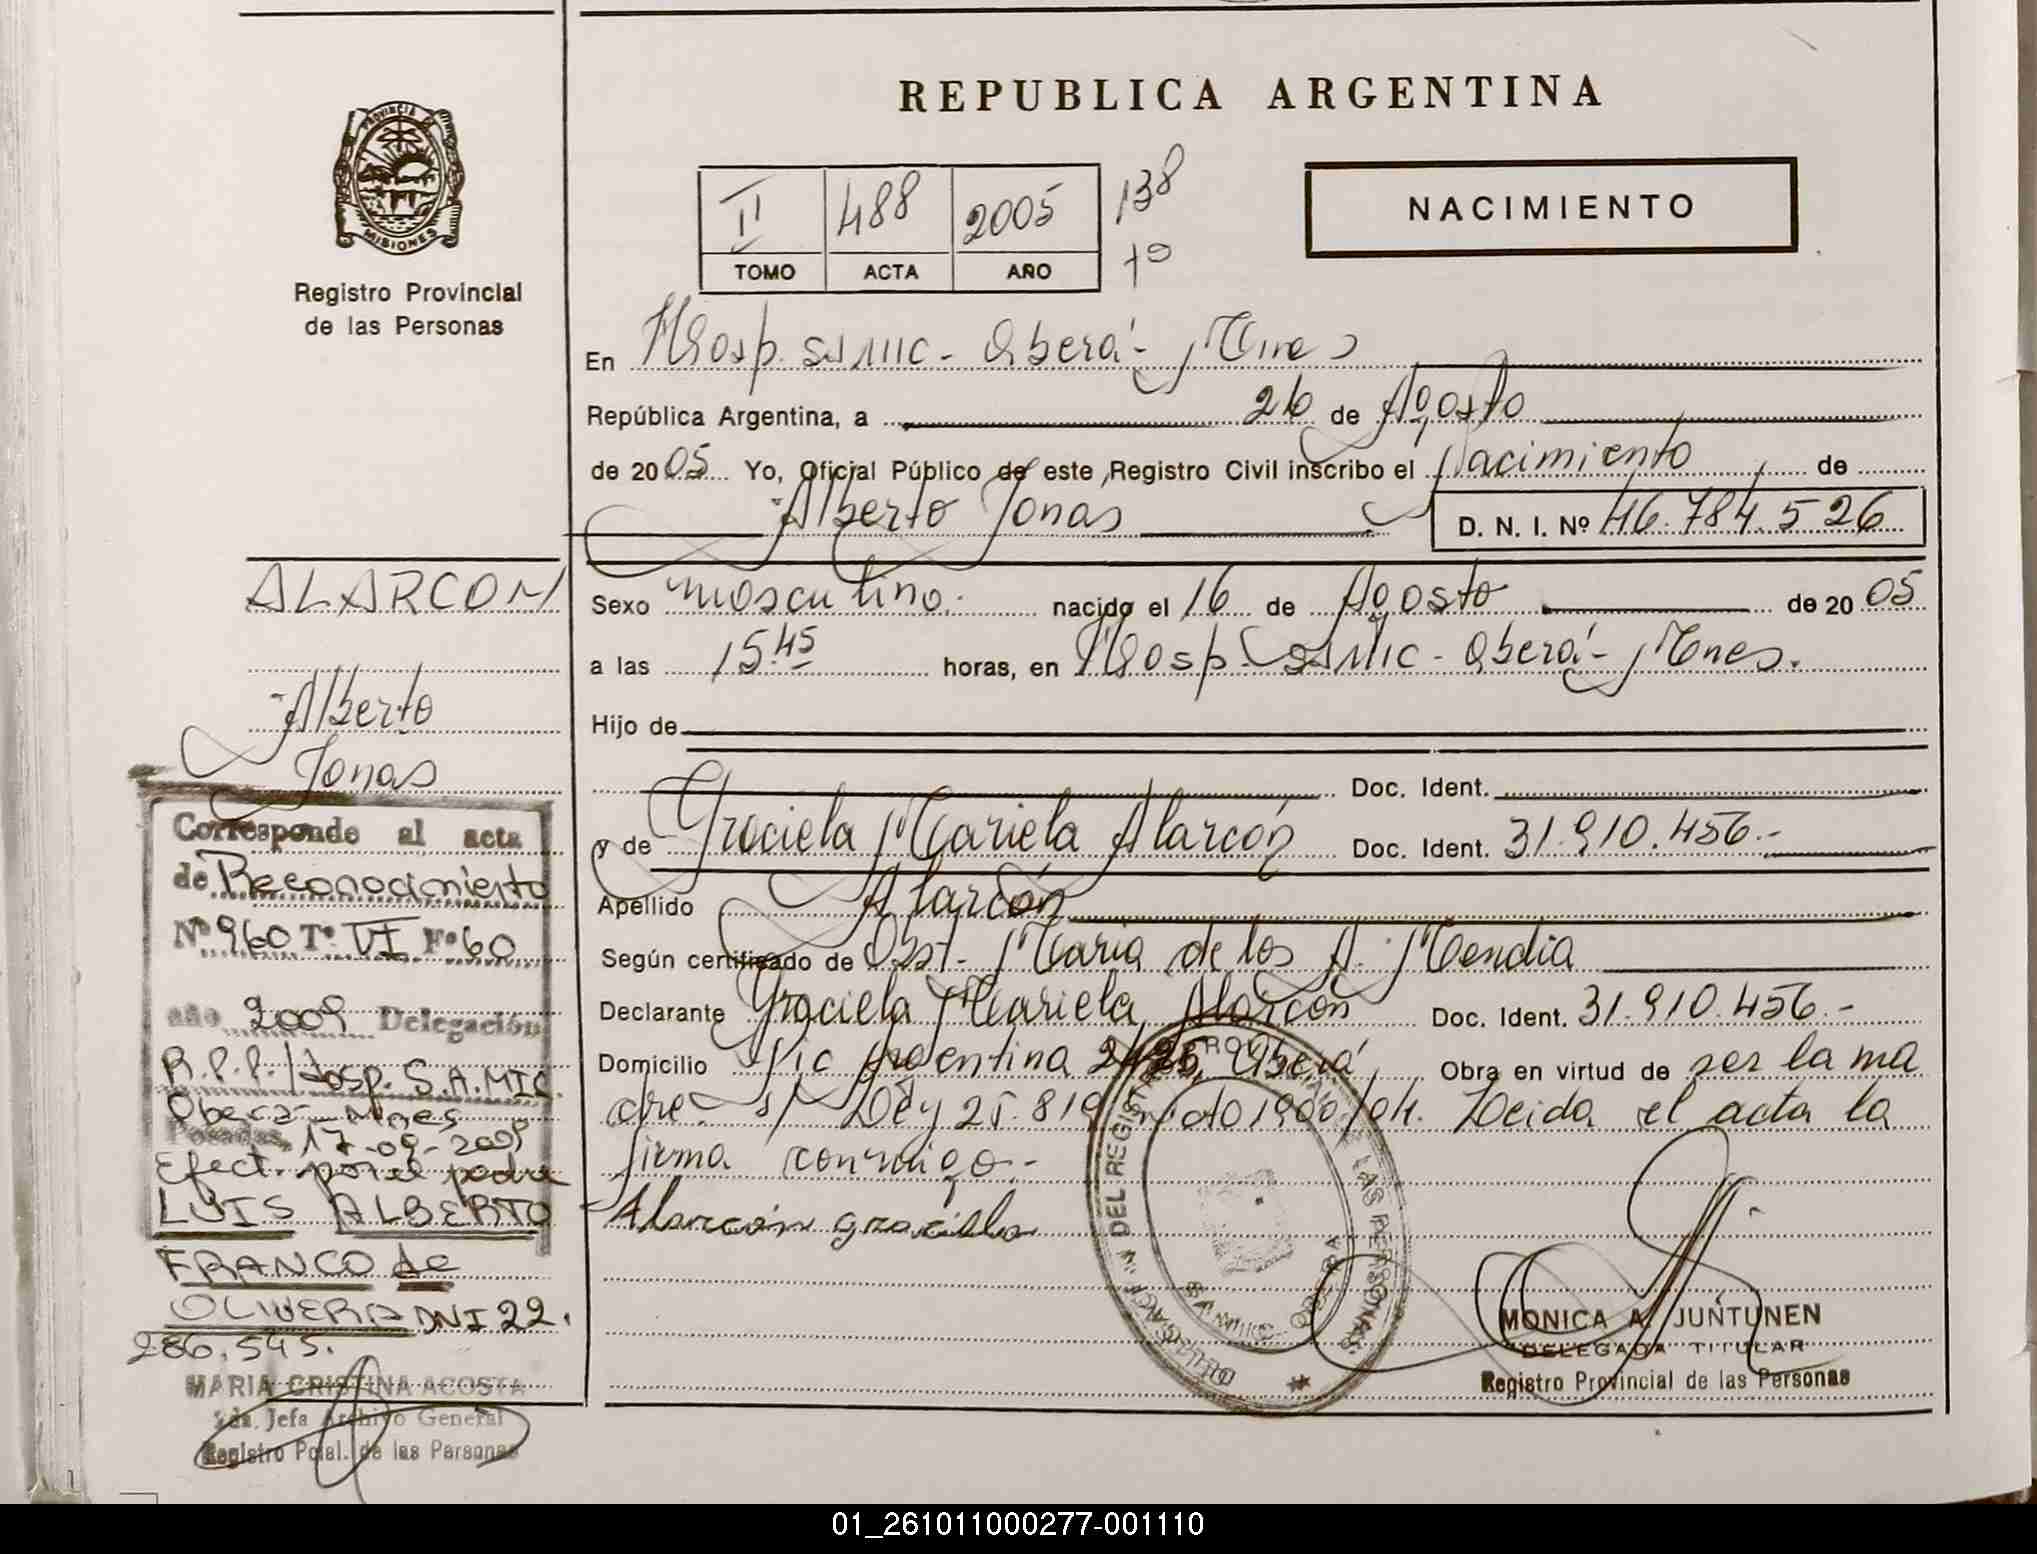 REPUBLICA ARGENTINA
PROVINCIA DE
MISIONES
Registro Provincial
de las Personas
II 488 2005 138
TOMO ACTA AÑO fº
NACIMIENTO
En Hosp. SAMIC - Oberá - Mnes
República Argentina, a 26 de Agosto
de 2005 Yo, Oficial Público de este Registro Civil inscribo el Nacimiento de
Alberto Jonas D. N. I. Nº 46.784.526
Sexo masculino. nacido el 16 de Agosto de 2005
a las 15.45 horas, en Hosp. SAMIC - Oberá - Mnes.
Hijo de
Doc. Ident.
y de Graciela Mariela Alarcón Doc. Ident. 31.910.456.-
Apellido Alarcón
Según certificado de Obst. Maria de los A. Mendia
Declarante Graciela Mariela Alarcón Doc. Ident. 31.910.456.-
Domicilio Vic Argentina Oberá Obra en virtud de ser la ma
dre. s/ Ley 25.819 Leida el acta la
firma conmigo.-
Alarcón graciela
DEL REGISTRO PROVINCIAL DE LAS PERSONAS
OBERA
MONICA A. JUÑTUNEN
DELEGADA TITULAR
Registro Provincial de las Personas
ALARCON
Alberto
Jonas
Corresponde al acta
de Reconocimiento
Nº 960 Tº VI Fº 60
año 2009 Delegación
R.P.P./Hosp. S.A.MIC.
Oberá - Mnes
Posadas, 17-09-2009
Efect. por el padre
LUIS ALBERTO
FRANCO de
OLIVERA DNI 22.
286.545.
MARIA CRISTINA ACOSTA
2da. Jefa Archivo General
Registro Pcial. de las Personas
01_261011000277-001110